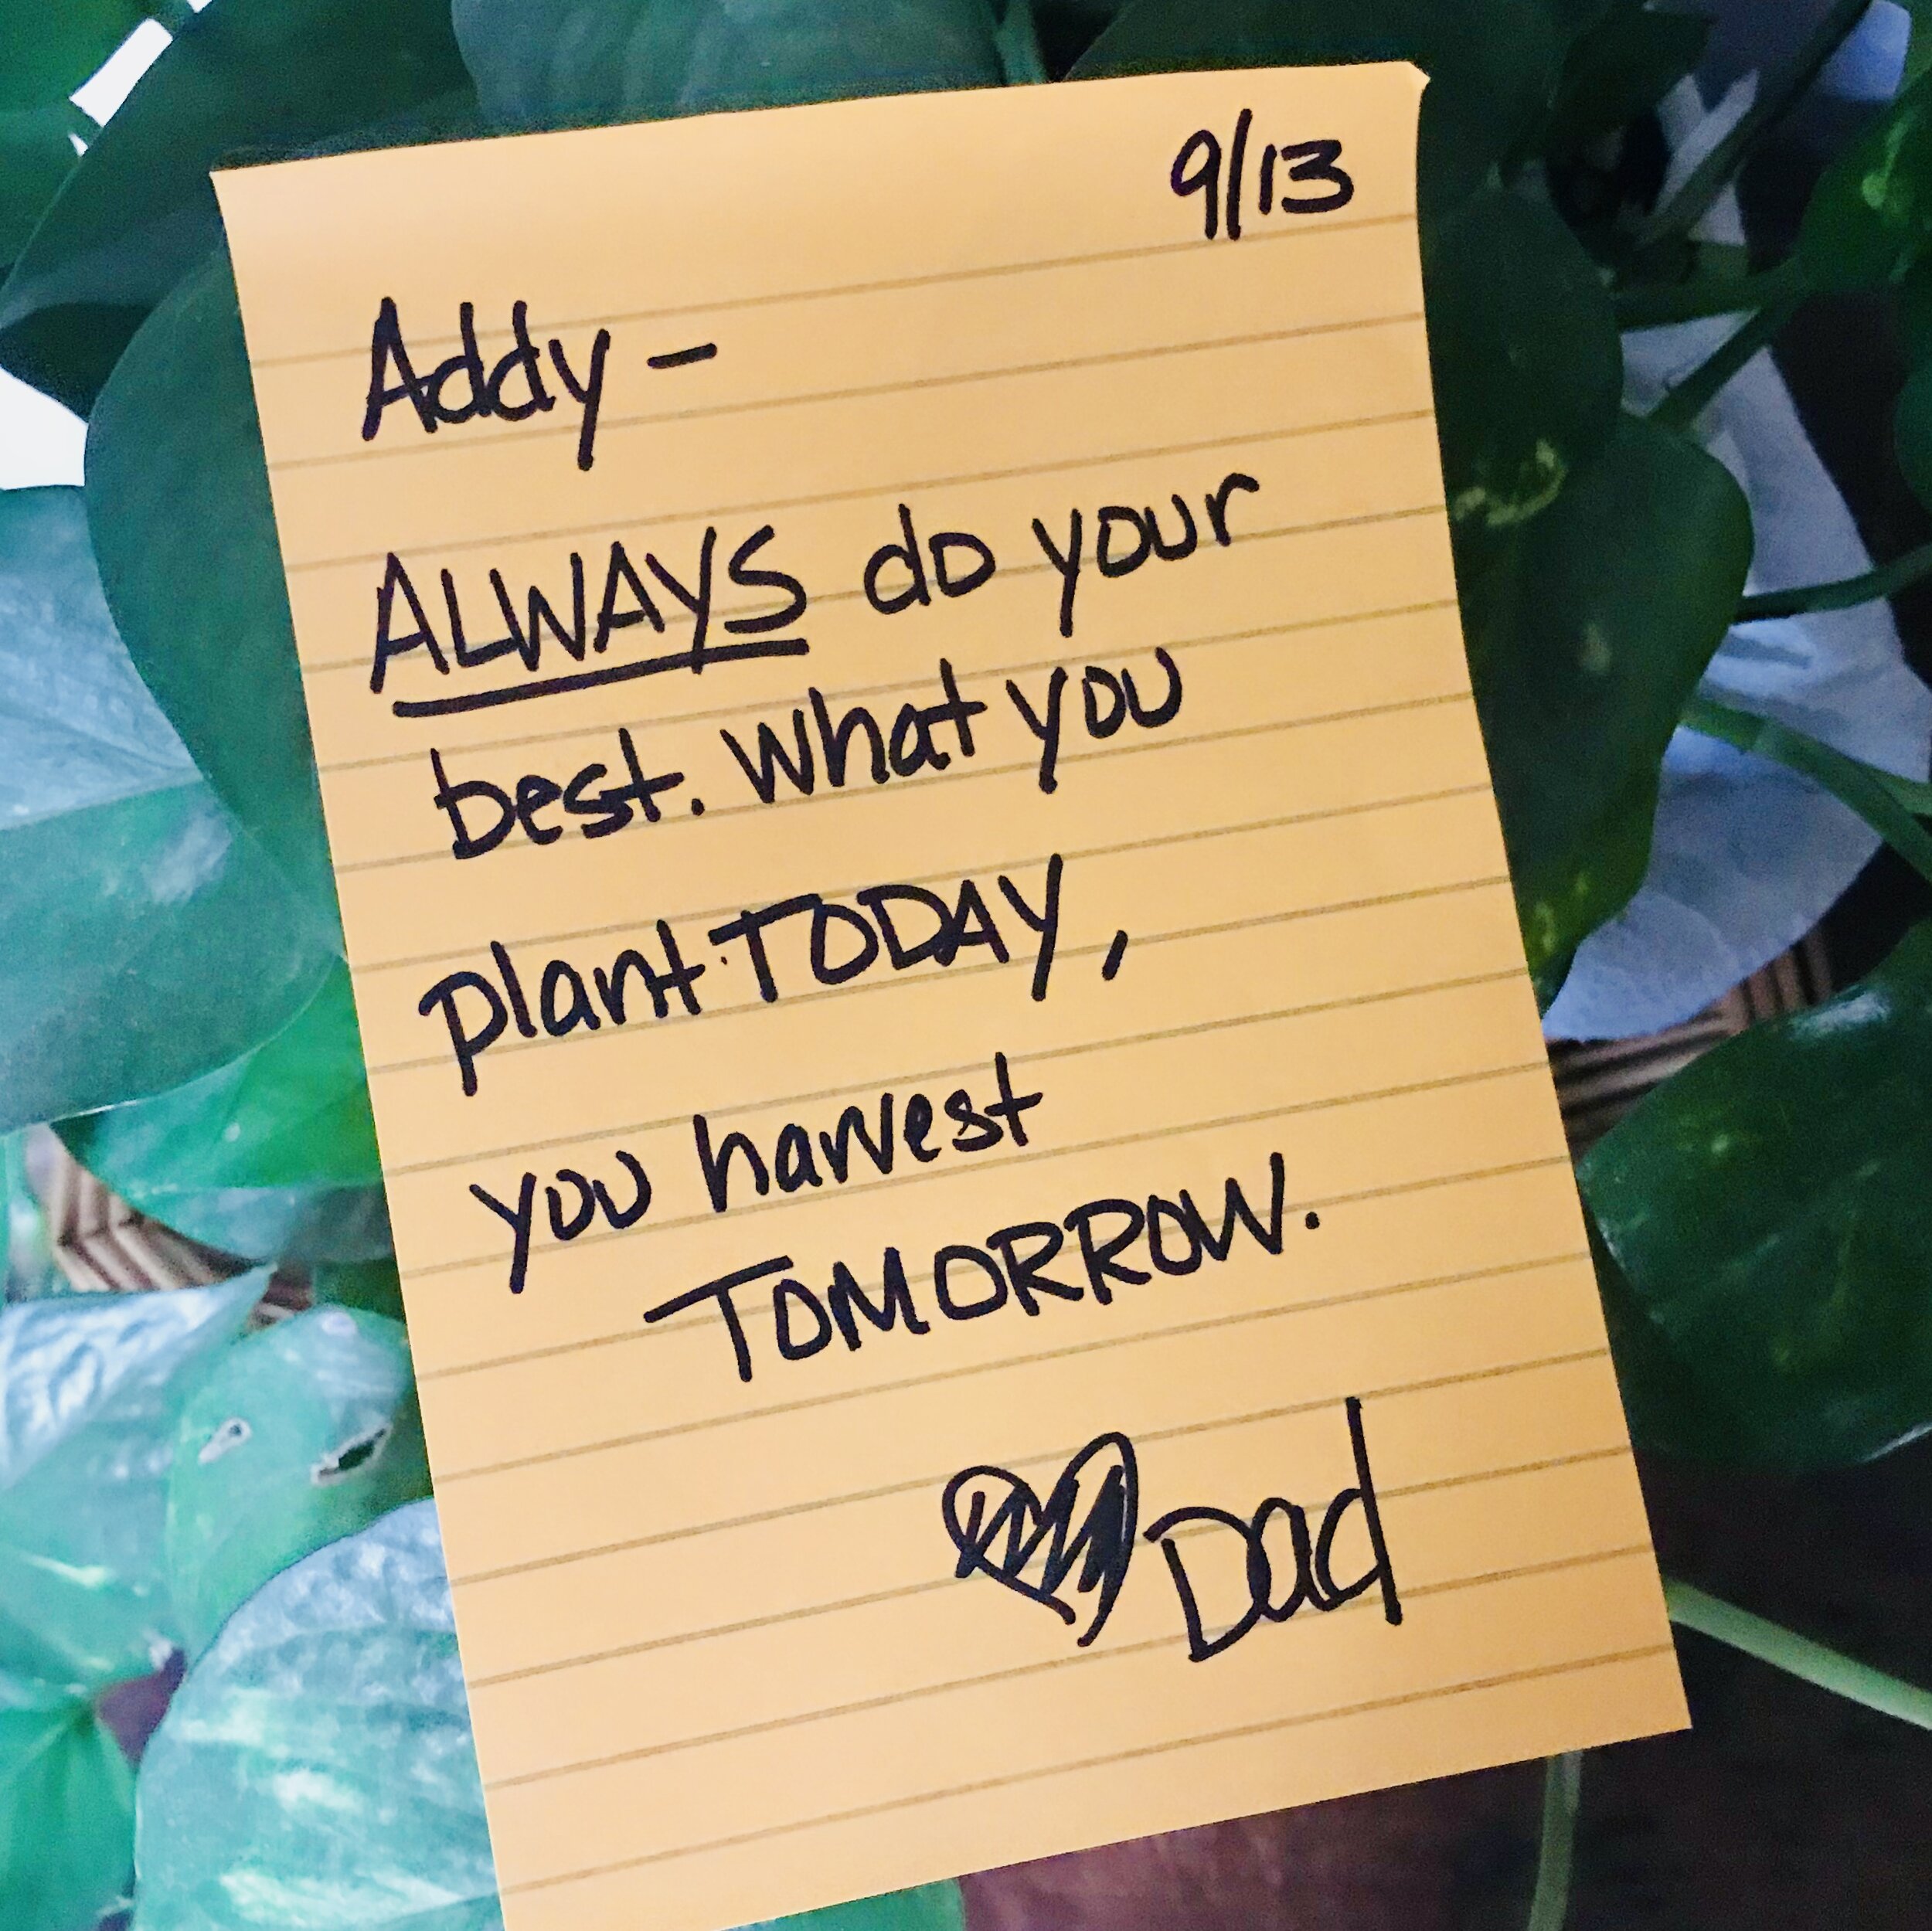 9/13
Addy -
ALWAYS do your
best. What you
plant TODAY,
you harvest
TOMORROW.
Dad